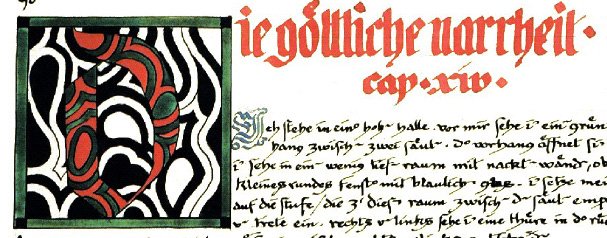 Die göttliche narrheit·
cap·xiv·
Ich stehe in ein͛ hoh͛ halle. vor mir sehe i ein͛ grün
hang zwisch͛ zwei säul͛. d͛ vorhang öffnet si
i sehe in ein͛ wenig tief͛ raum mit nackt͛ wänd͛, ob
kleines rundes fenst͛ mit bläulich͛ glas. i setze mei
auf die stufe, die z' dies͛ raum zwisch͛ d͛ säul͛ emp
v trete ein. rechts v links sehe i eine thüre in d͛ rü